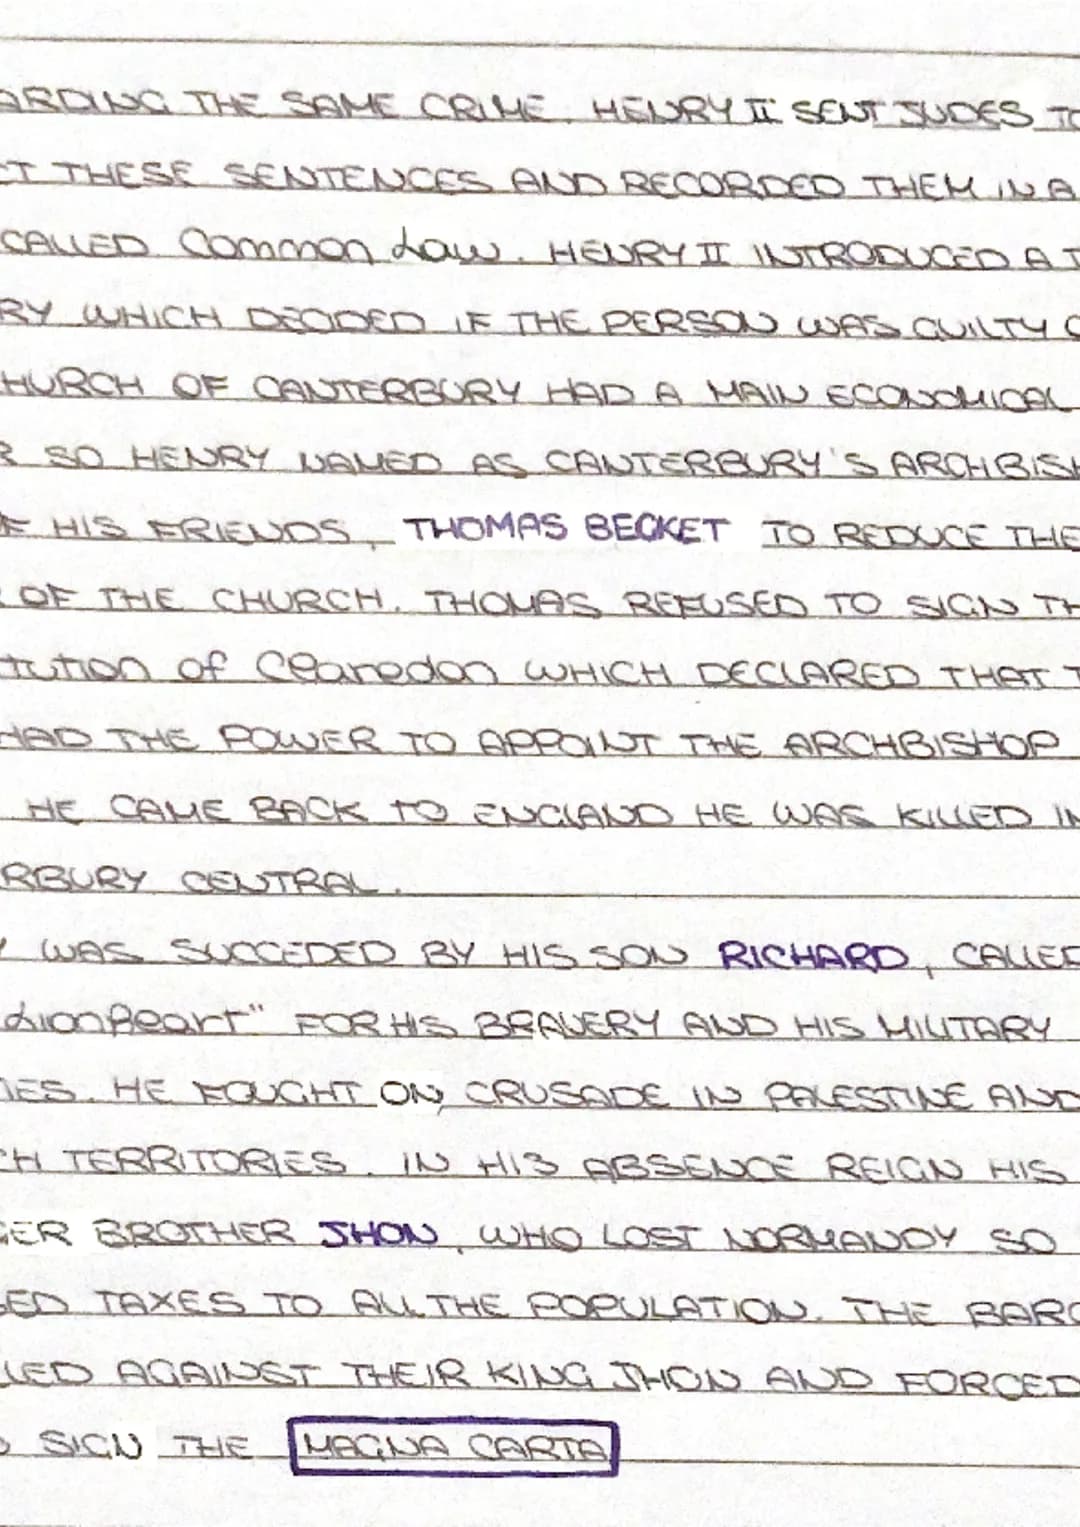 ARDING THE SAME CRIME. HENRY II SENT JUDES TO
CT THESE SENTENCES AND RECORDED THEM IN A
CALLED Common Law. HENRY II INTRODUCED A T
RY WHICH DECIDED IF THE PERSON WAS GUILTY O
HURCH OF CANTERBURY HAD A MAIN ECONOMICAL
R SO HENRY NAMED AS CANTERBURY'S ARCHBISH
F HIS FRIENDS, THOMAS BECKET TO REDUCE THE
OF THE CHURCH. THOMAS REFUSED TO SIGN TH
tution of Clearedon WHICH DECLARED THAT T
HAD THE POWER TO APPOINT THE ARCHBISHOP
HE CAME BACK TO ENGLAND HE WAS KILLED IN
RBURY CENTRAL.
Y WAS SUCCEDED BY HIS SON RICHARD, CALLED
Lionheart" FOR HIS BRAVERY AND HIS MILITARY
IES. HE FOUGHT ON CRUSADE IN PALESTINE AND
CH TERRITORIES. IN HIS ABSENCE REIGN HIS
GER BROTHER JHON, WHO LOST NORMANDY SO
SED TAXES TO ALL THE POPULATION. THE BARO
LLED AGAINST THEIR KING JHON AND FORCED
O SIGN THE MAGNA CARTA